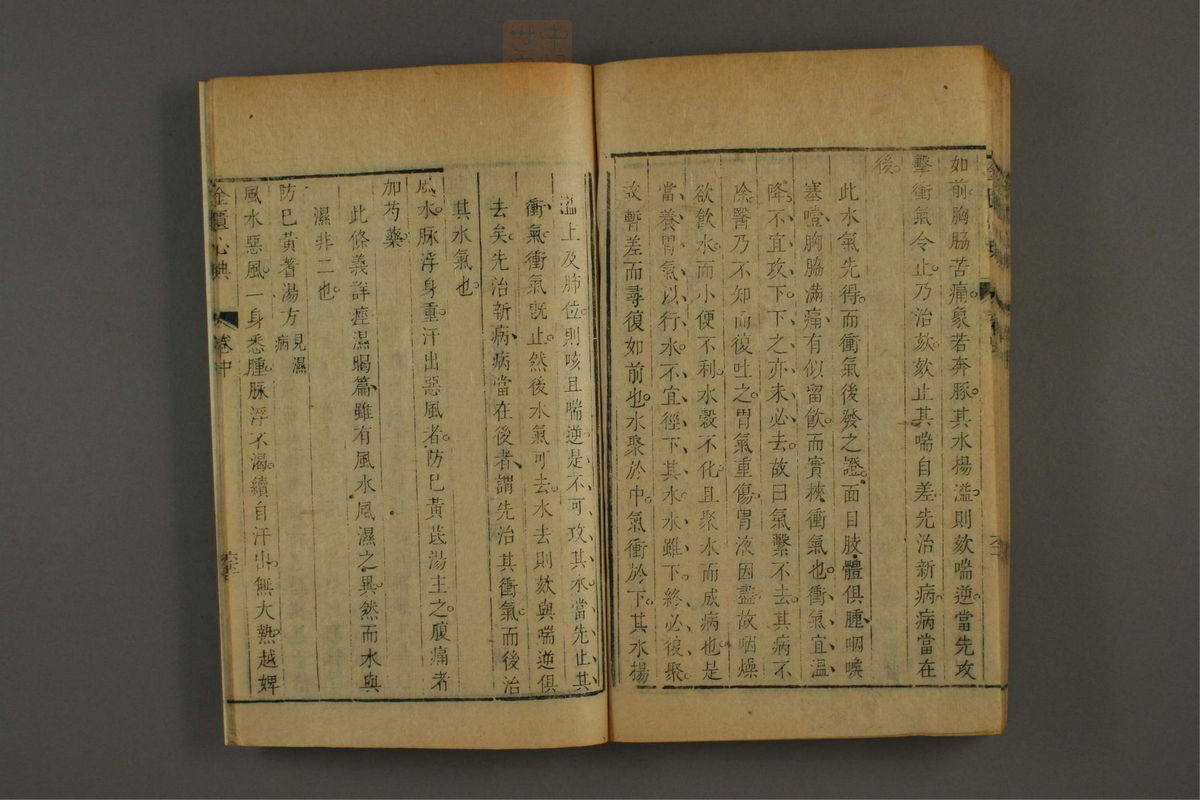 如前胸脇苦痛象若奔豚其水揚溢則欬喘逆當先攻
擊衝氣令止乃治欬欬止其喘自差先治新病病當在
後
此水氣先得而衝氣後發之證面目肢體俱腫咽喉
塞噎胸脇滿痛有似留飲而實挾衝氣也衝氣宜溫
降不宜攻下下之亦未必去故曰氣繫不去其病不
除醫乃不知而復吐之胃氣重傷胃液因盡故咽燥
欲飲水而小便不利水穀不化且聚水而成病也是
當養胃氣以行水不宜徑下其水水雖下終必復聚
故暫差而尋復如前也水聚於中氣衝於下其水揚
溢上及肺位則咳且喘逆是不可攻其水當先止其
衝氣衝氣既止然後水氣可去水去則欬與喘逆俱
去矣先治新病病當在後者謂先治其衝氣而後治
其水氣也
風水脉浮身重汗出惡風者防已黃芪湯主之腹痛者
加芍藥
此條義詳痙濕暍篇雖有風水風濕之異然而水與
濕非二也
防已黃蓍湯方 見濕病
風水惡風一身悉腫脉浮不渴續自汗出無大熱越婢
金匱心典 卷中